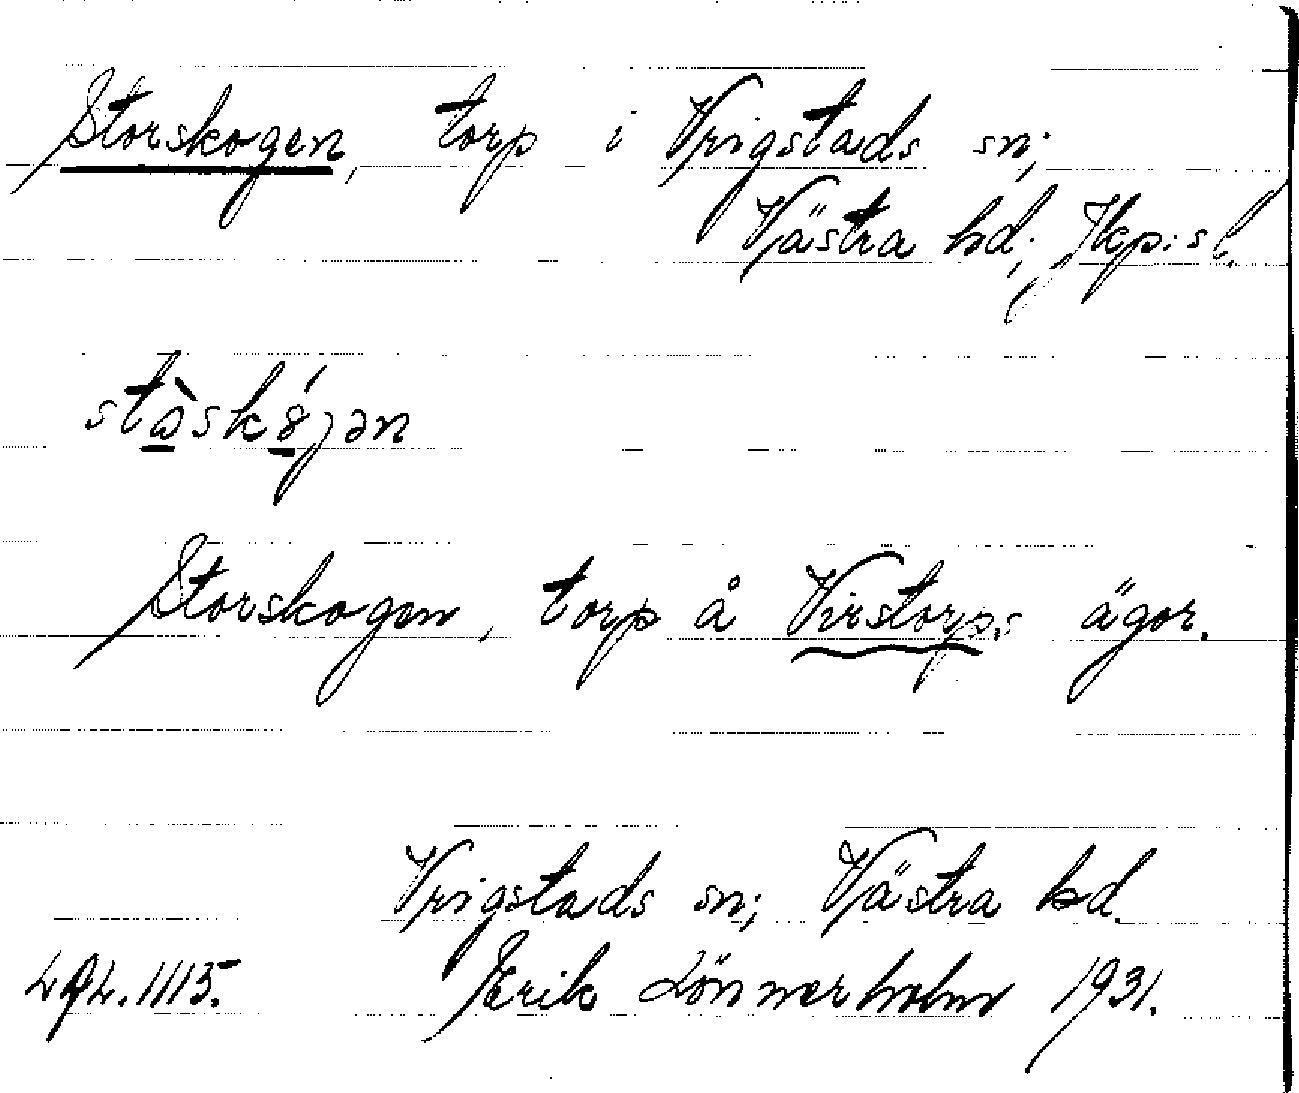 Storskogen, torp i Vrigstads sn;
Västra hd; Jkp:s l.
Storskogen, torp å Virstorps ägor.
Vrigstads sn; Västra hd.
1115. Erik Lönnerholm 1931.